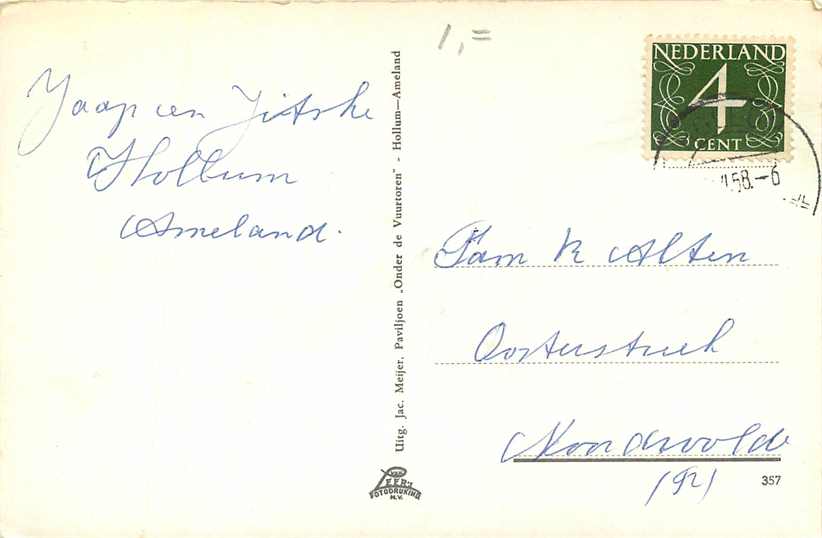 1,=
NEDERLAND
4
CENT
58.-6
Jaap en Jitske
Hollum
Ameland.
Uitg. Jac. Meijer, Paviljoen „Onder de Vuurtoren" - Hollum—Ameland
Fam R Alten
Oosterstreek
Noordwolde
(Fr)
VAN LEER'S
FOTODRUKIND
N.V.
357